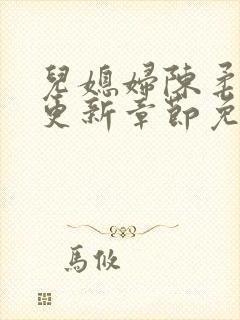 兒媳婦陳柔
更新章節免
馬攸